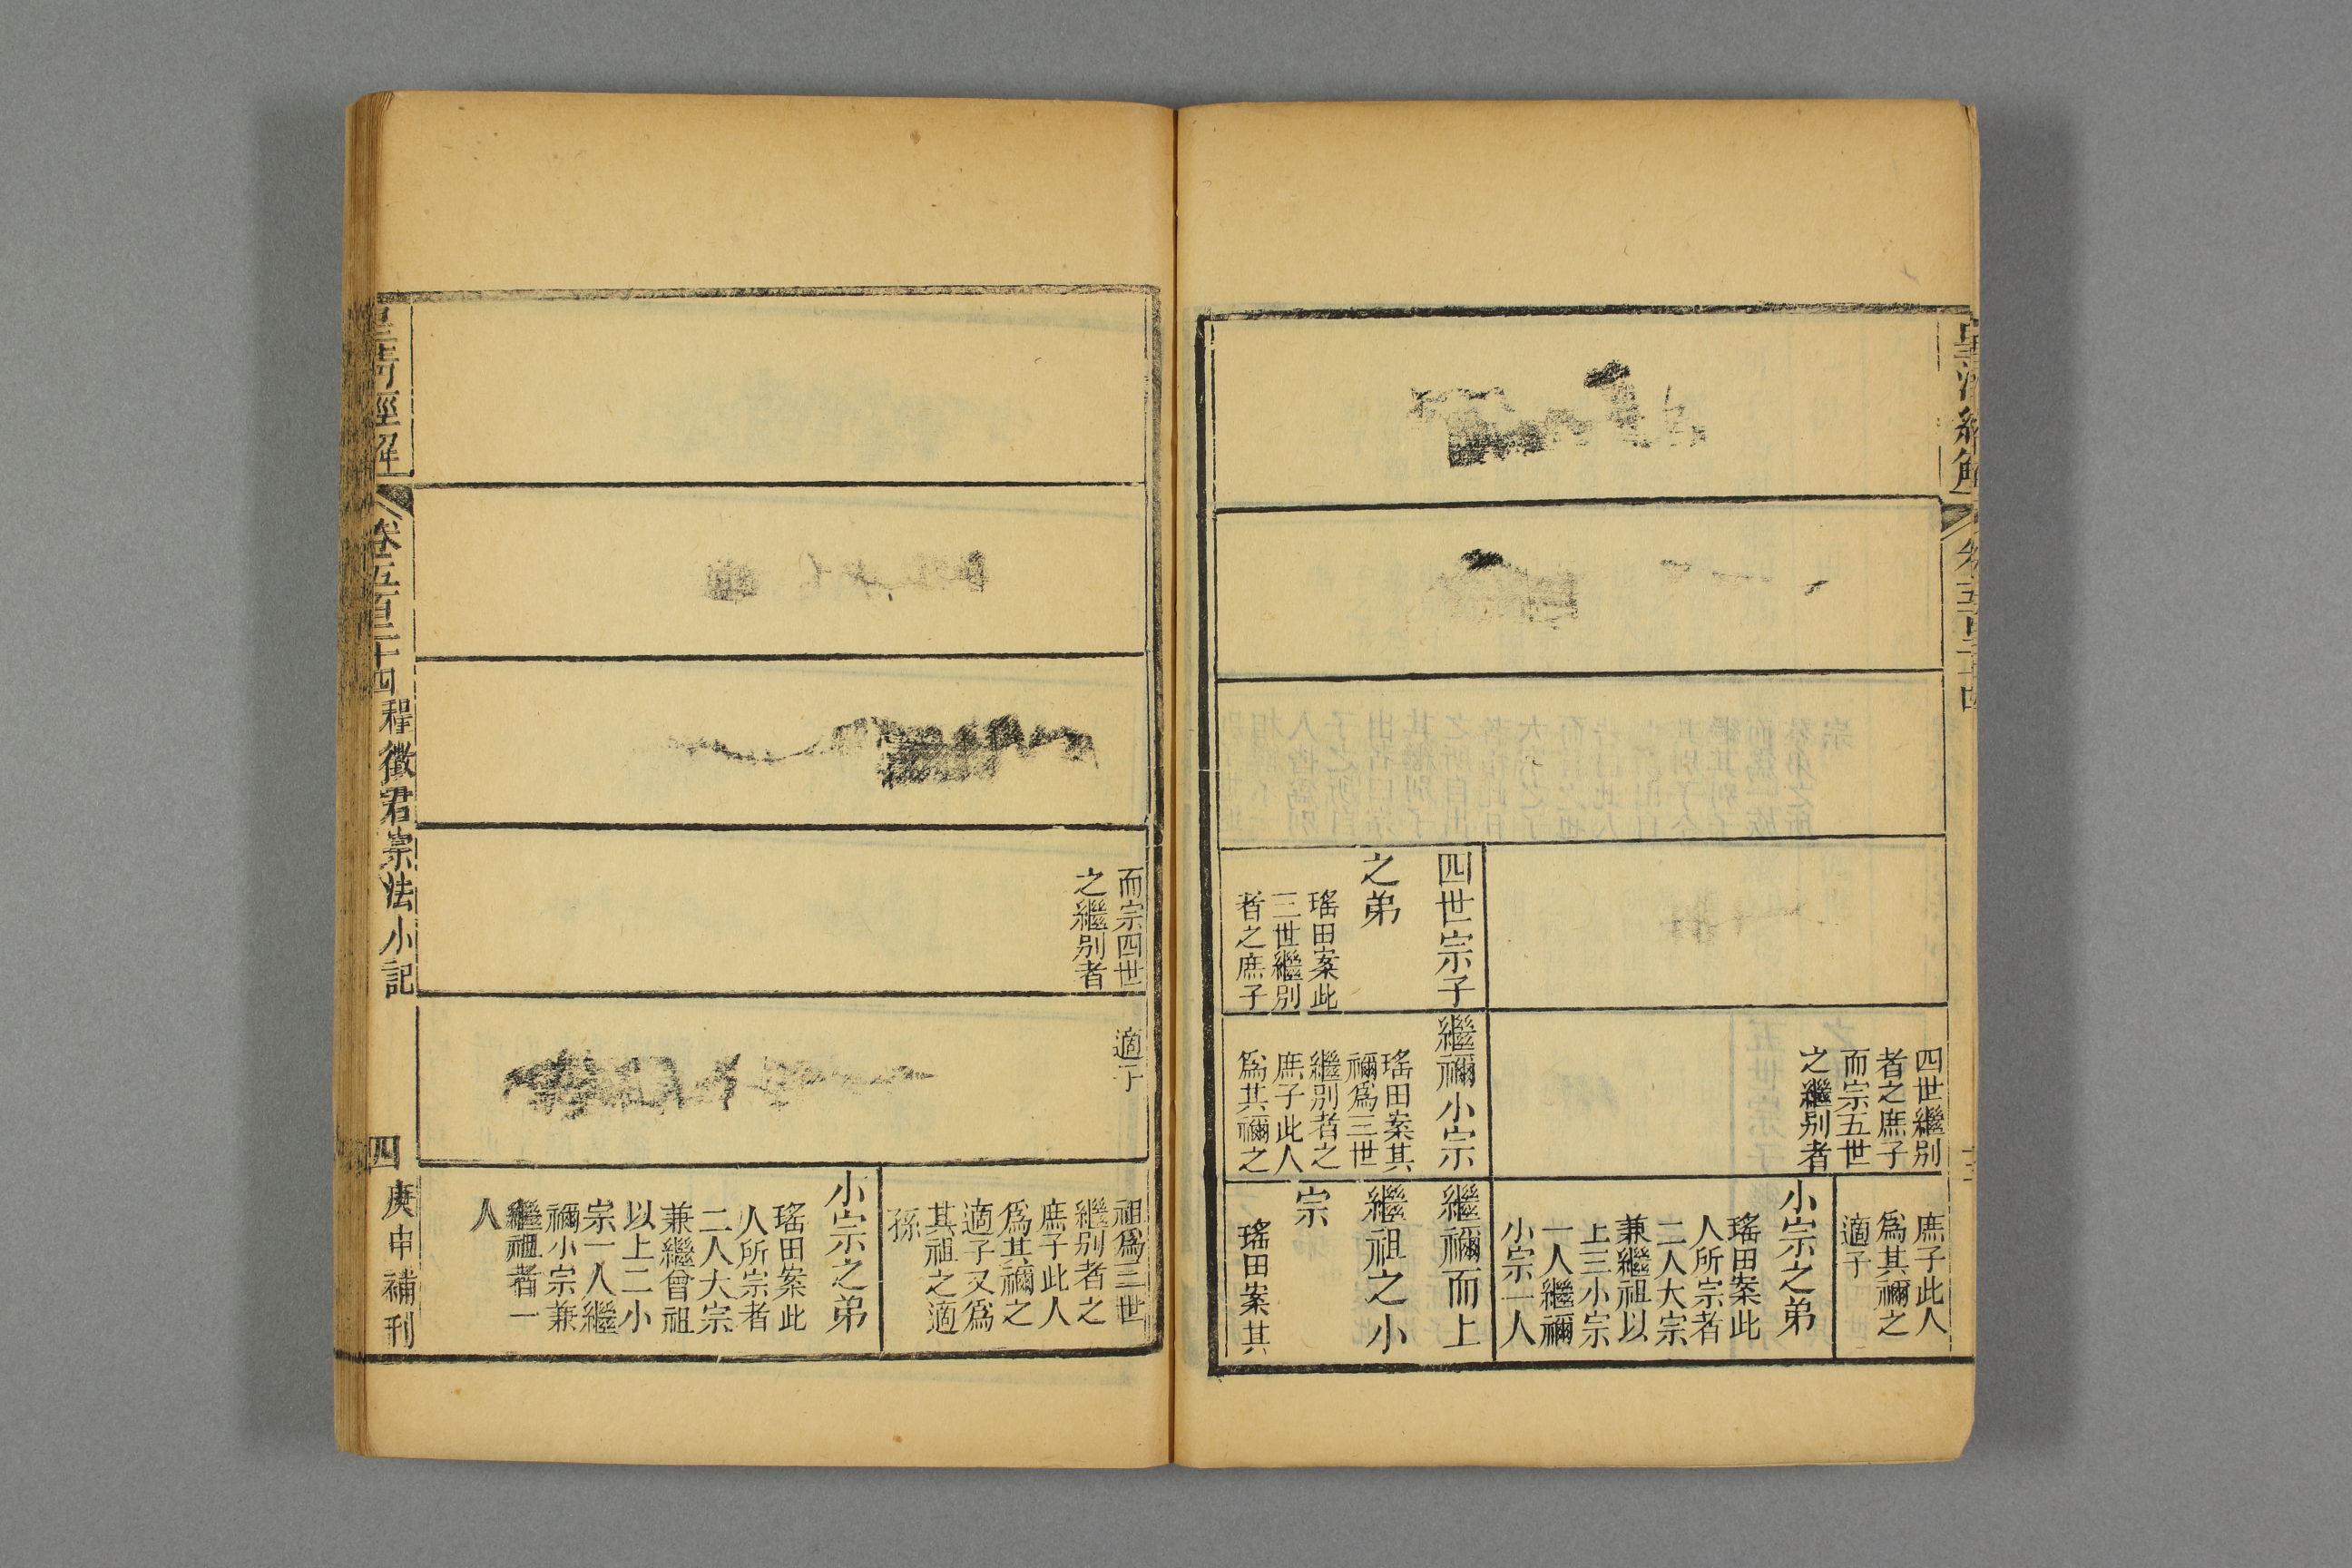 皇清經解
卷五百二十四
四世宗子
之弟
瑤田案此
三世繼別
者之庶子
四世繼別
者之庶子
而宗五世
之繼別者
繼禰小宗
瑤田案其
禰爲三世
繼別者之
庶子此人
爲其禰之
庶子此人
爲其禰之
適子
小宗之弟
瑤田案此
人所宗者
二人大宗
兼繼祖以
上三小宗
一人繼禰
小宗一人
繼禰而上
繼祖之小
宗
瑤田案其
而宗四世
之繼別者
適子
祖爲三世
繼別者之
庶子此人
爲其禰之
適子又爲
其祖之適
孫
小宗之弟
瑤田案此
人所宗者
二人大宗
兼繼曾祖
以上二小
宗一人繼
禰小宗兼
繼祖者一
人
皇清經解
卷五百二十四
程徵君宗法小記
四
庚申補刊